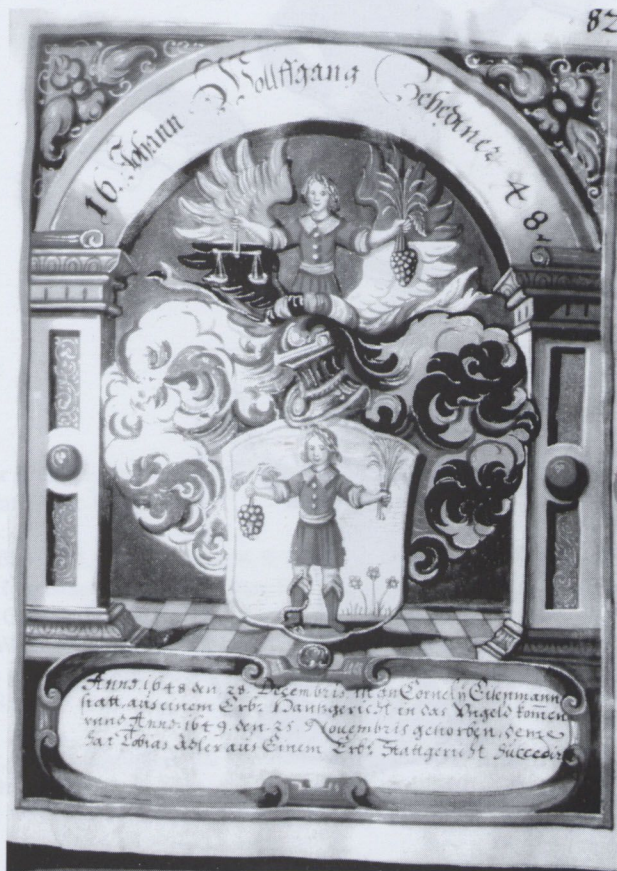 82
16. Johann Wollffgang Schediner 48.
Anno. 1648 den 28. Decembris. ist an Cornelÿ Eisenmann
statt, aus einem Erb: Hannsgericht in das Vngeld kom̄en
vnnd Anno: 1649. den. 25. Nouembris gestorben, deme
hat Tobias Adler aus Einem Erb: Stattgericht Succedirt